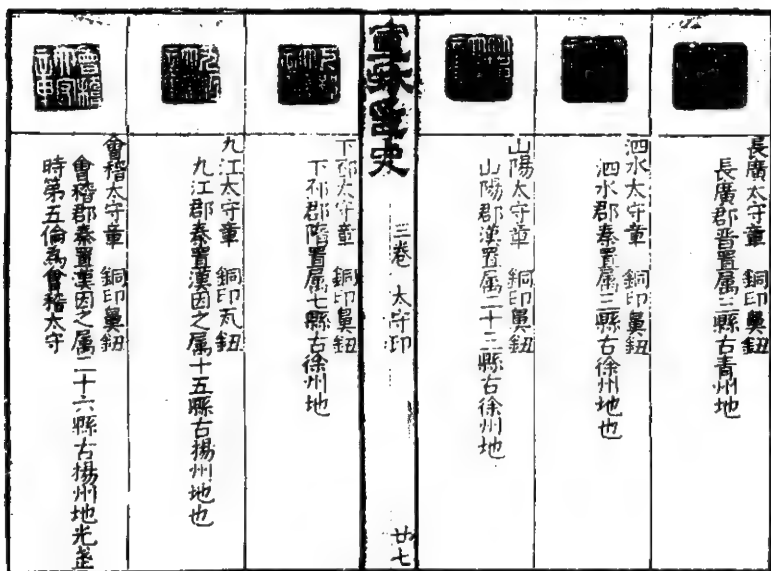 長廣太守章　銅印鼻鈕
長廣郡晉置屬三縣古青州地
泗水太守章　銅印鼻鈕
泗水郡秦置屬三縣古徐州地也
山陽太守章　銅印鼻鈕
山陽郡漢置屬二十三縣古徐州地
三卷　太守印
廿七
下邳太守章　銅印鼻鈕
下邳郡隋置屬七縣古徐州地
九江太守章　銅印瓦鈕
九江郡秦置漢因之屬十五縣古揚州地也
會稽太守章　銅印鼻鈕
會稽郡秦置漢因之屬二十六縣古揚州地光武
時第五倫為會稽太守
會稽太守章